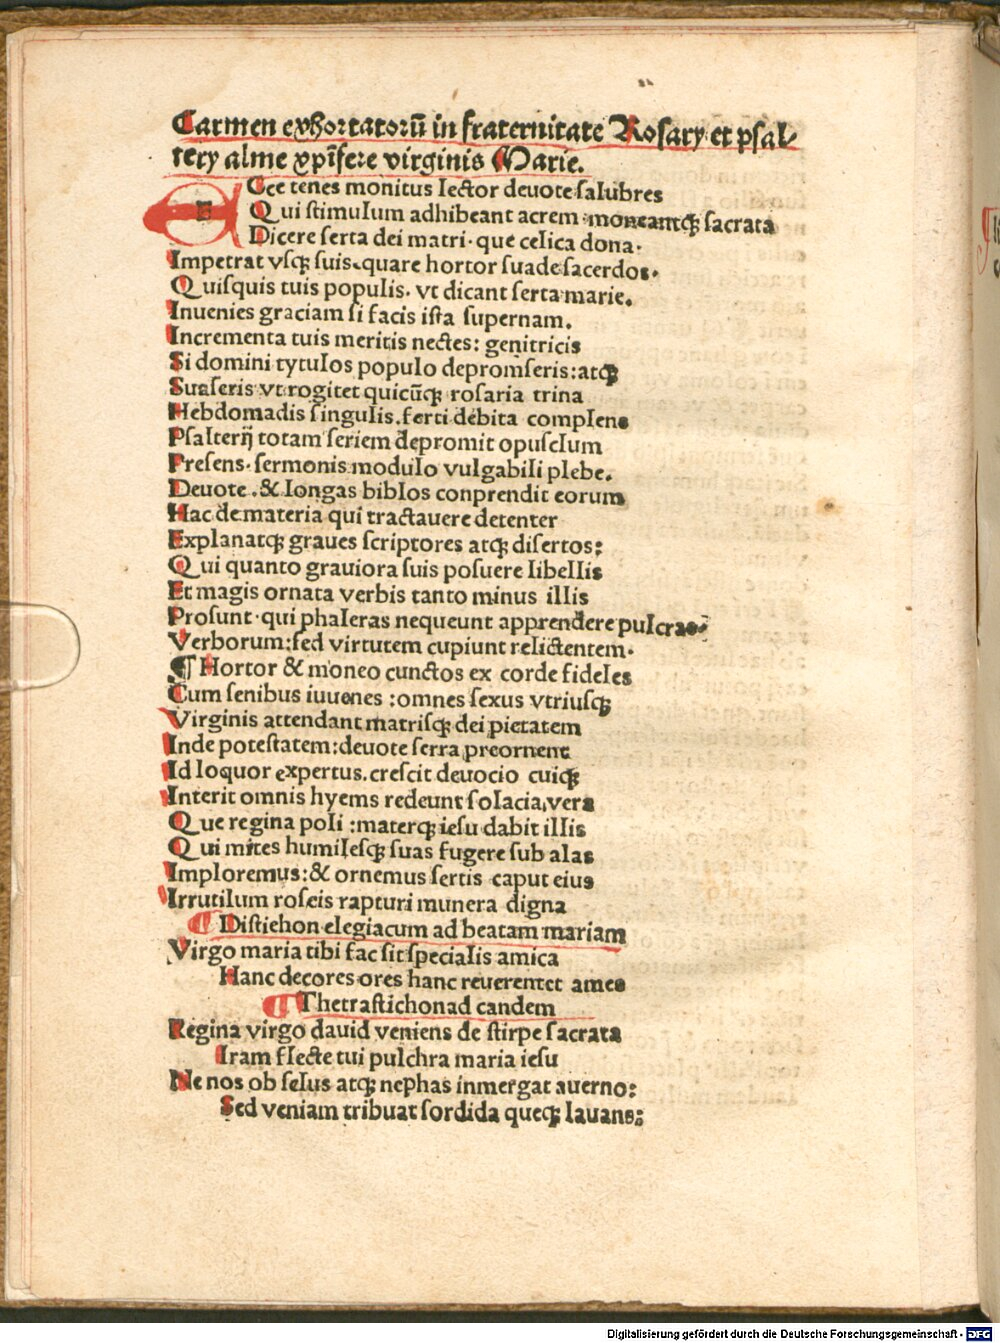 Carmen exhortatorū in fraternitate Rosary et psal-
tery alme xp̄ifere virginis Marie.
Ecce tenes monitus lector deuote salubres
Qui stimulum adhibeant acrem moneantqꝫ sacrata
Dicere serta dei matri. que celica dona.
Impetrat vsqꝫ suis. quare hortor suade sacerdos.
Quisquis tuis populis. vt dicant serta marie.
Inuenies graciam si facis ista supernam.
Incrementa tuis meritis nectes: genitricis
Si domini tytulos populo depromseris: atqꝫ
Suaseris vt rogitet quicūqꝫ rosaria trina
Hebdomadis singulis. ferti debita complens
Psalterij totam seriem depromit opusclum
Presens. sermonis modulo vulgabili plebe.
Deuote. & longas biblos conprendit eorum
Hac de materia qui tractauere detenter
Explanatqꝫ graues scriptores atqꝫ disertos:
Qui quanto grauiora suis posuere libellis
Et magis ornata verbis tanto minus illis
Prosunt. qui phaleras nequeunt apprendere pulcras.
Verborum: sed virtutem cupiunt relictentem.
¶ Hortor & moneo cunctos ex corde fideles
Cum senibus iuuenes : omnes sexus vtriusqꝫ
Virginis attendant matrisqꝫ dei pietatem
Inde potestatem: deuote serra preornent
Id loquor expertus. crescit deuocio cuiqꝫ
Interit omnis hyems redeunt solacia, vera
Que regina poli : materqꝫ iesu dabit illis
Qui mites humilesqꝫ suas fugere sub alas
Imploremus: & ornemus sertis caput eius
Irrutilum roseis rapturi munera digna
¶ Distichon elegiacum ad beatam mariam
Virgo maria tibi fac sit specialis amica
Hanc decores ores hanc reuerentet ames
¶ Thetrastichon ad eandem
Regina virgo dauid veniens de stirpe sacrata
Iram flecte tui pulchra maria iesu
Ne nos ob selus atqꝫ nephas inmergat auerno:
Sed veniam tribuat sordida queqꝫ lauans:
Digitalisierung gefördert durch die Deutsche Forschungsgemeinschaft - DFG